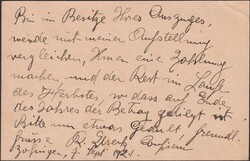 Bin im Besitze Ihres Auszuges,
werde mit meiner Aufstellung
vergleichen, Ihnen eine Zahlung
machen, und der Rest im Laufe
des Herbstes, so dass auf Ende
des Jahres der Betrag getilgt ist.
Bitte um etwas Geduld, freundl.
Grüsse
Zofingen, Sept.